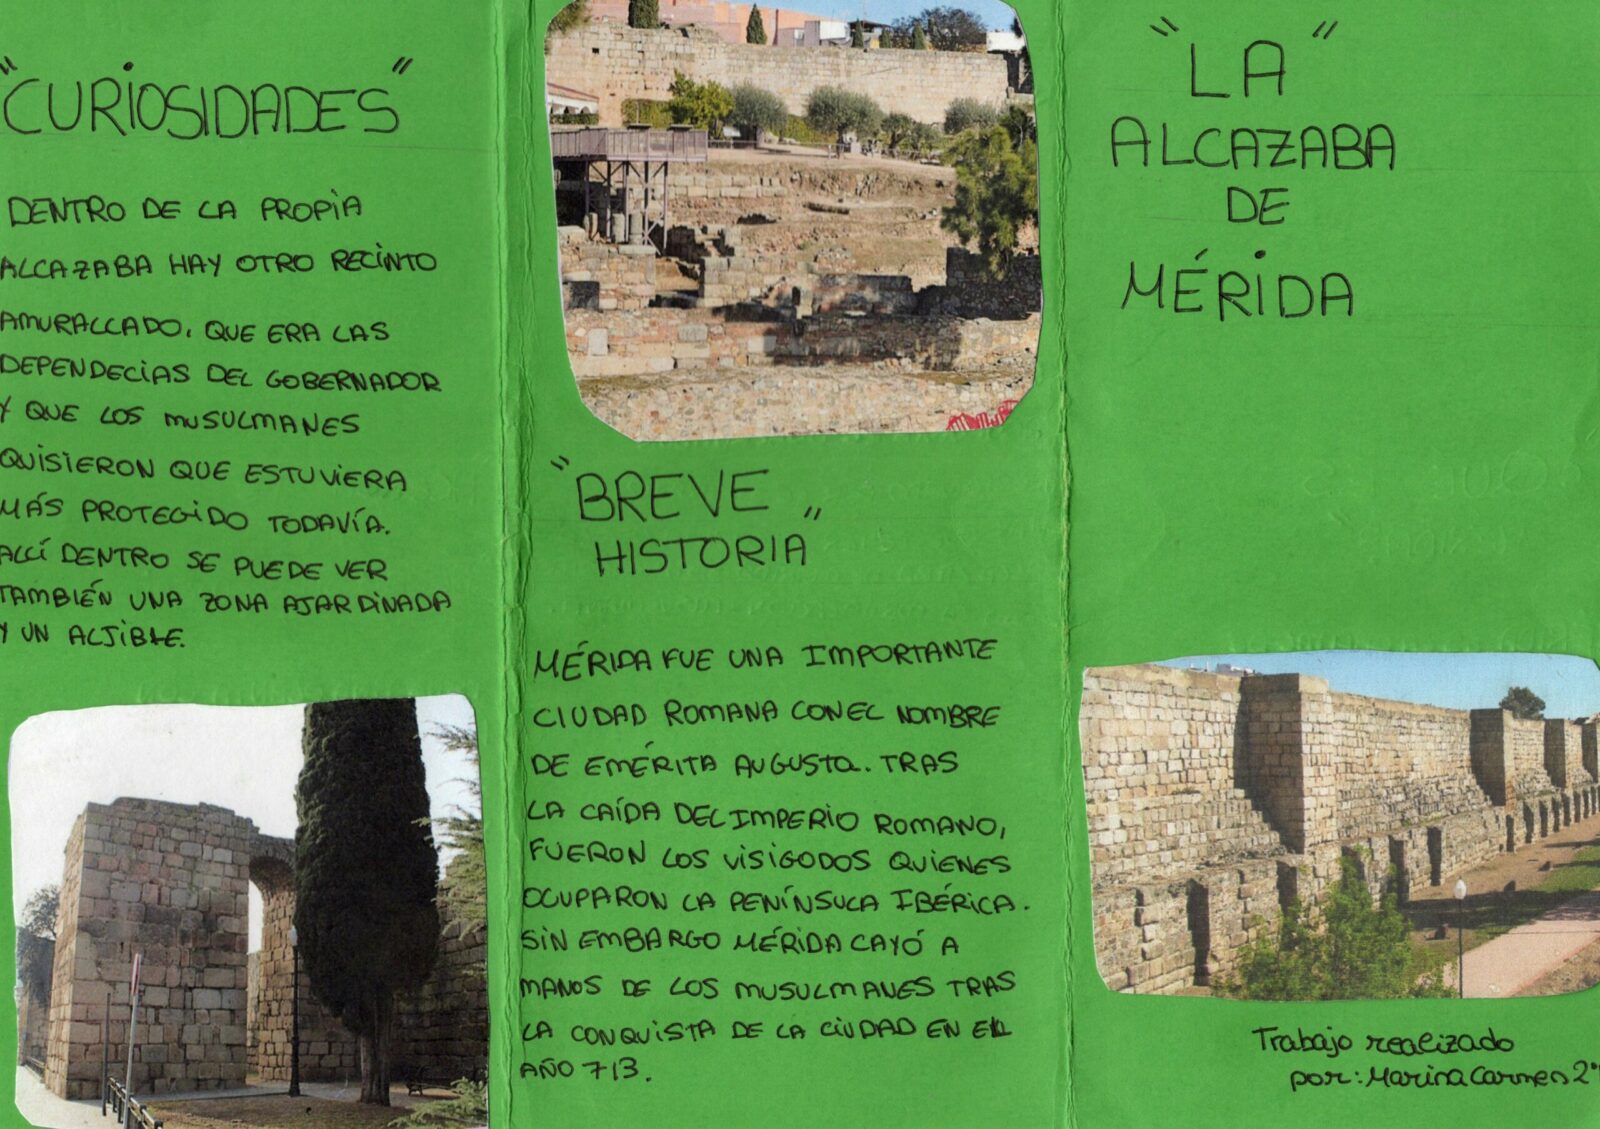 "CURIOSIDADES"
DENTRO DE LA PROPIA
ALCAZABA HAY OTRO RECINTO
AMURALLADO, QUE ERA LAS
DEPENDECIAS DEL GOBERNADOR
Y QUE LOS MUSULMANES
QUISIERON QUE ESTUVIERA
MÁS PROTEGIDO TODAVÍA.
ALLÍ DENTRO SE PUEDE VER
TAMBIÉN UNA ZONA AJARDINADA
Y UN ALJIBE.
"BREVE
HISTORIA"
MÉRIDA FUE UNA IMPORTANTE
CIUDAD ROMANA CON EL NOMBRE
DE EMÉRITA AUGUSTA. TRAS
LA CAÍDA DEL IMPERIO ROMANO,
FUERON LOS VISIGODOS QUIENES
OCUPARON LA PENÍNSULA IBÉRICA.
SIN EMBARGO MÉRIDA CAYÓ A
MANOS DE LOS MUSULMANES TRAS
LA CONQUISTA DE LA CIUDAD EN EL
AÑO 713.
"LA"
ALCAZABA
DE
MÉRIDA
Trabajo realizado
por: Marina Carmen 2º